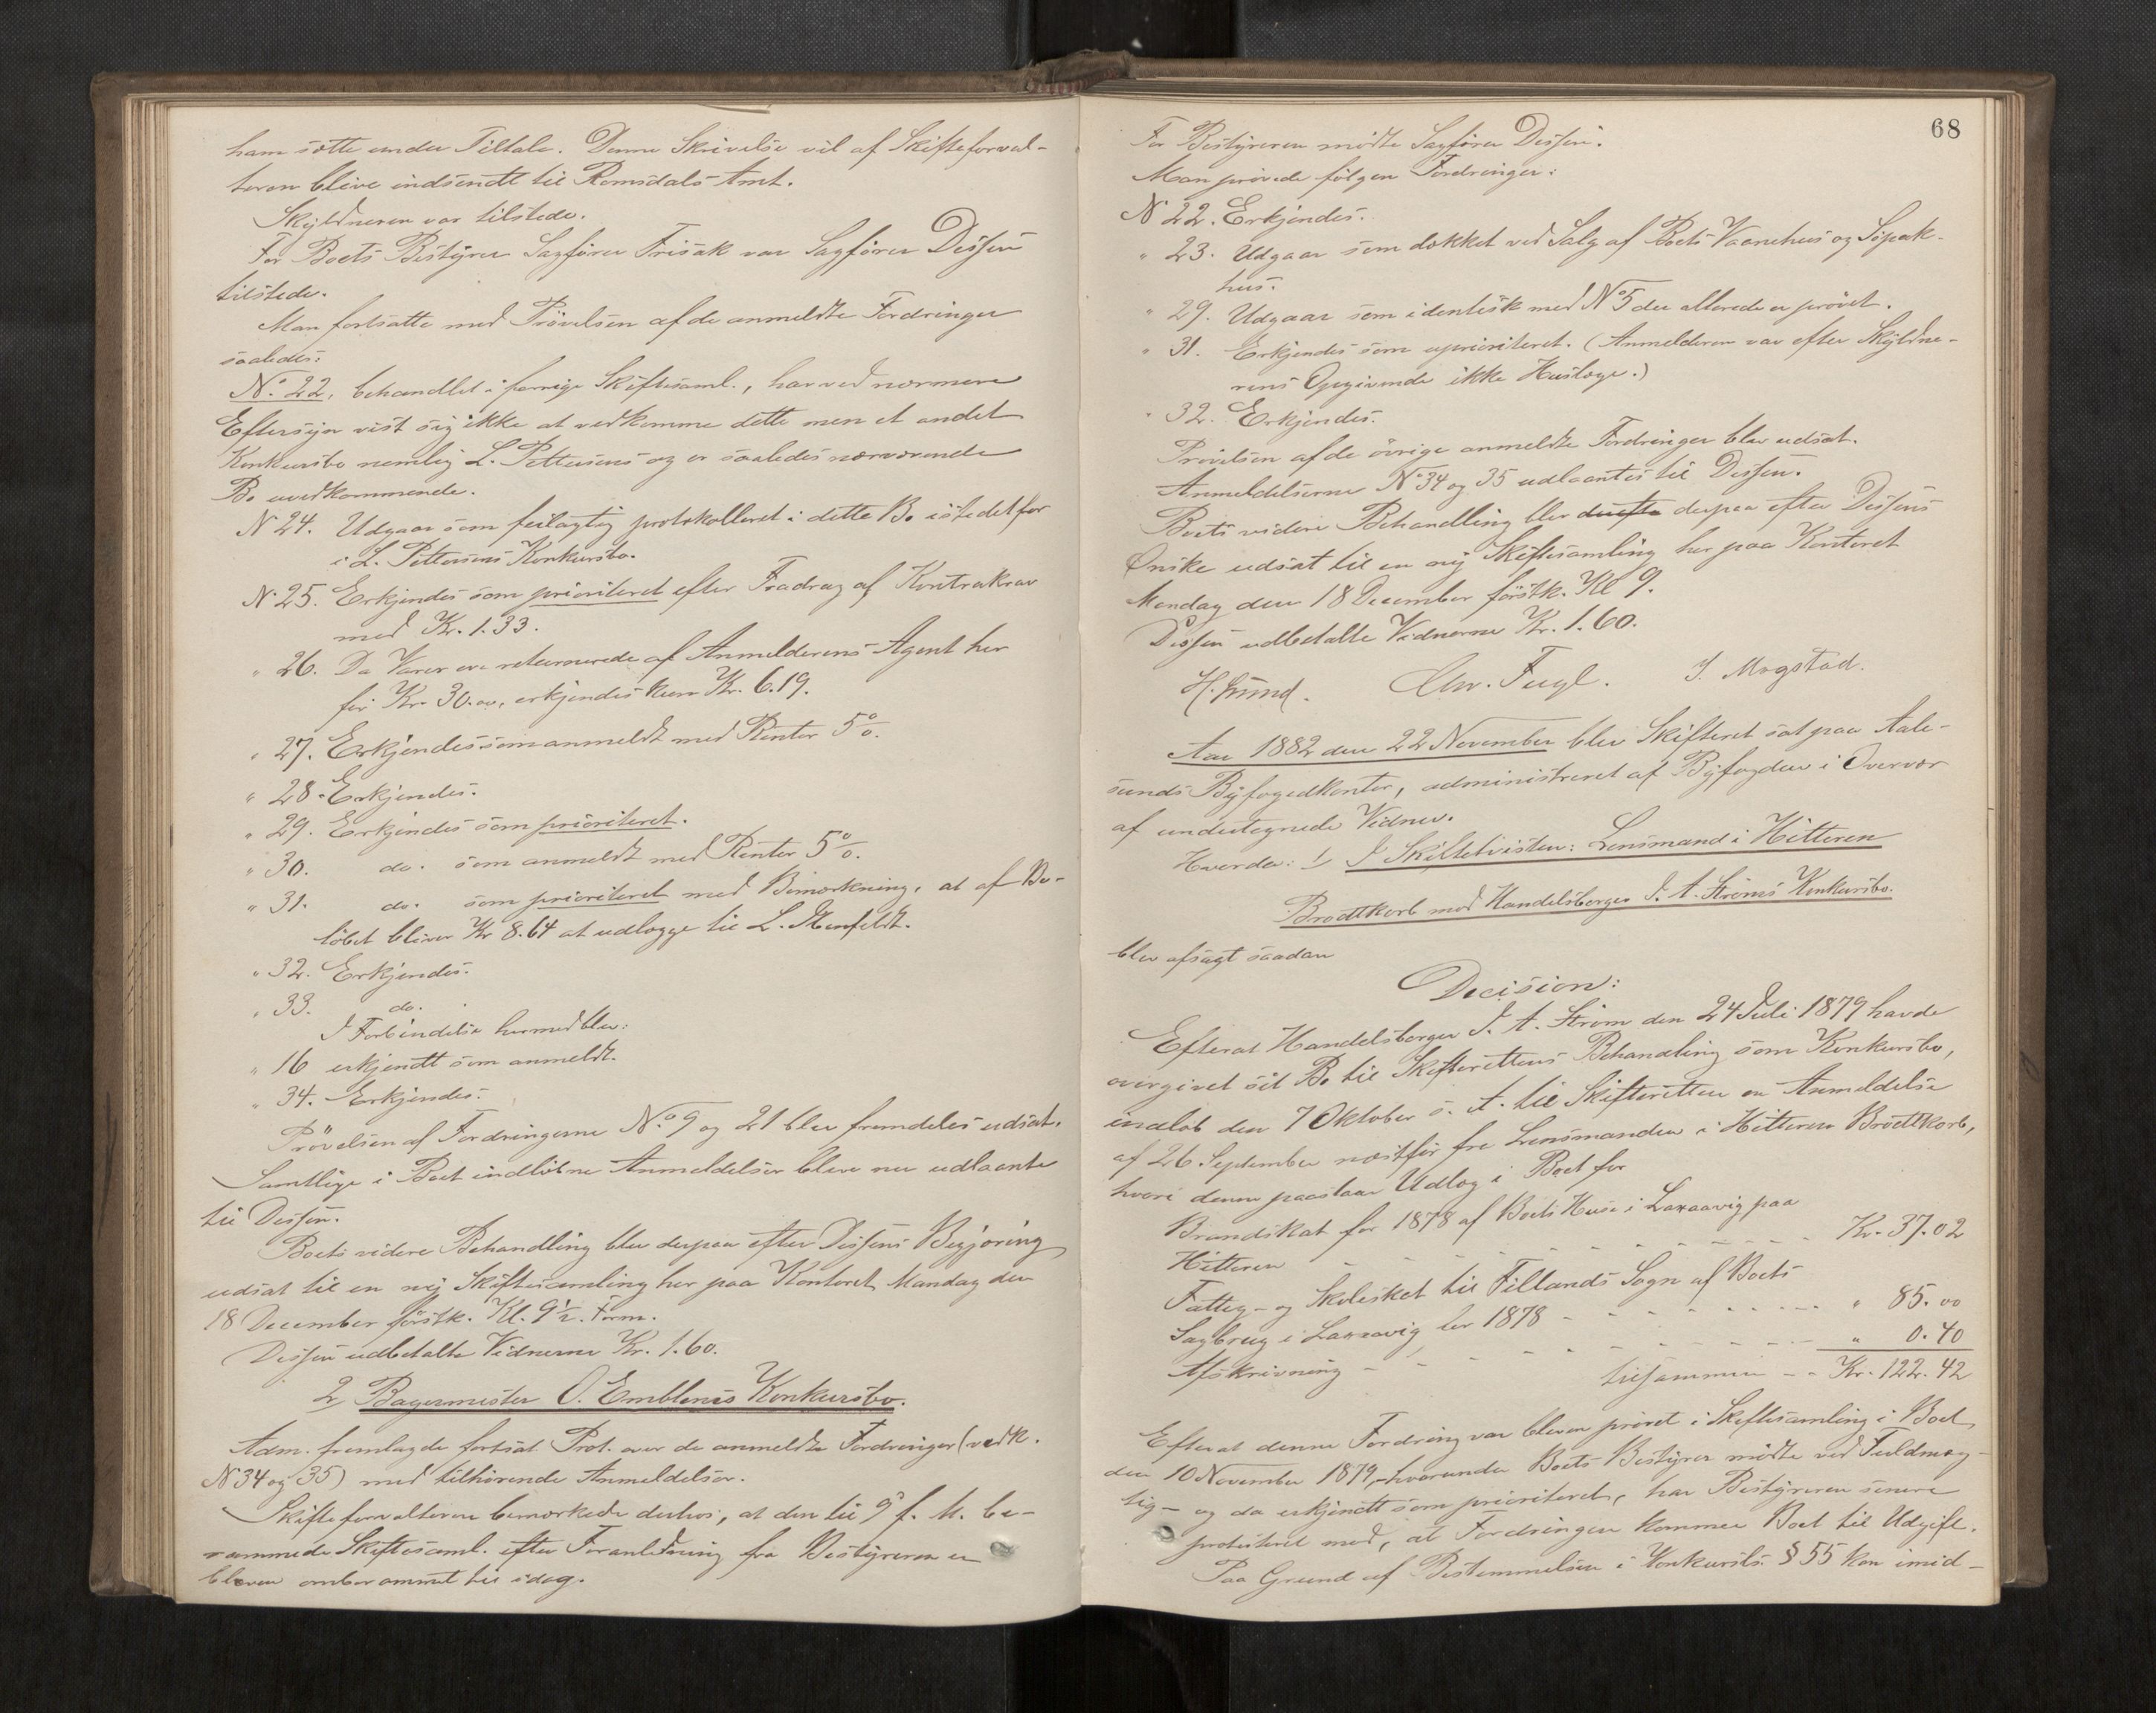 ham sætte under Tiltale. Denne Skrivelse vil af Skifteforval-
teren blive indsendt til Romsdals Amt.
Skyldneren var tilstede.
For Boets Bestyrer Sagfører Frisak var Sagfører Dessen
tilstede.
Man fortsatte med Prövelsen af de anmeldte Fordringer
saaledes:
No. 22, behandlet i forrige Skiftesaml., har ved nærmere
Eftersyn vist sig ikke at vedkomme dette men et andet
Konkursbo nemlig L. Pettersens og er saaledes nærværende
Bo uvedkommende.
N 24. Udgaar som feilagtig protokolleret i dette Bo istedetfor
i L. Pettersens Konkursbo.
N. 25. Erkjendes som prioriteret efter Fradrag af Kontrakrav
med Kr. 1.33.
" 26. Da Varer ere returnerede af Anmelderens Agent her
for Kr. 30.00, erkjendes kun Kr. 6.19.
" 27. Erkjendes som anmeldt med Renter 5%.
" 28. Erkjendes.
" 29. Erkjendes som prioriteret.
" 30. do. som anmeldt med Renter 5%.
" 31. do. som prioriteret med Bemærkning, at af Be-
løbet bliver Kr 8.64 at udlægge til L.
" 32. Erkjendes.
" 33. do.
I Forbindelse hermed blev:
" 16 erkjendt som anmeldt.
" 34. Erkjendes.
Prövelsen af Fordringerne No. 9 og 21 blev fremdeles udsat.
Samtlige i Boet indlöbne Anmeldelser bleve nu udlaante
til Dessen.
Boets videre Behandling blev derpaa efter Dessens Begjæring
udsat til en ny Skiftesamling her paa Kontoret Mandag den
18 December förstk. Kl. 9 1/2 Form.
Dessen udbetalte Vidnerne Kr. 1.60.
2 Bagermester O. Emblems Konkursbo.
Adm. fremlagde fortsat Prot. over de anmeldte Fordringer (vedk.
N 34 og 35) med tilhørende Anmeldelser.
Skifteforvalteren bemærkede derhos, at den til 9 f. M. be-
rammede Skiftesaml. efter Foranledning fra Bestyreren er
bleven omberammet til idag.
68
For Bestyreren mødte Sagfører Dessen.
Man prövede fölgen Fordringer:
N 22. Erkjendes.
" 23. Udgaar som dækket ved Salg af Boets Vaanehus og Søpak-
hus.
" 29. Udgaar som identisk med No 5 der allerede er prövet.
" 31. Erkjendes som uprioriteret. (Anmelderen var efter Skyldne-
rens Opgivende ikke Huslæge.)
" 32. Erkjendes.
Prövelsen af de övrige anmeldte Fordringer blev udsat.
Anmeldelserne No 34 og 35 udlaantes til Dessen.
Boets videre Behandling blev derefte derpaa efter Dessens
Ønske udsat til en ny Skiftesamling her paa Kontoret
Mandag den 18 December förstk. Kl 9.
Dessen udbetalte Vidnerne Kr. 1.60.
Chr. Fugl. J. Mogstad.
Aar 1882 den 22 November blev Skifteret sat paa Aale-
sunds Byfogedkontor, administreret af Byfogden i Overvær
af undertegnede Vidner.
Hvorda: 1 I Skiftetvisten: Lensmand i Hitteren
Brodtkorb mod Handelsborger I. A. Strøms Konkursbo.
blev afsagt saadan
Decision:
Efterat Handelsborger I. A. Strøm den 24 Juli 1879 havde
overgivet sit Bo til Skifterettens Behandling som Konkursbo,
indløb den 7 Oktober s. A. til Skifteretten en Anmeldelse
af 26 September næstfør fra Lensmanden i Hitteren Brodtkorb,
hvori denne paastaar Udlæg i Boet for
Brandskat for 1878 af Boets Huse i Laxaavig paa
Hitteren - - - - - - - - - Kr. 37.02
Fattig- og Skoleskat til Fillands Sogn af Boets
Sagbrug i Laxaavig for 1878 - - - - - - " 85.00
Afskrivning - - - - - - - - - " 0.40
tilsammen - - Kr. 122.42
Efterat denne Fordring var bleven prövet i Skiftesamling i Boet
den 10 November 1879,-hvorunder Boets Bestyrer mødte ved Fuldmæg-
tig- og da erkjendt som prioriteret, har Bestyreren senere
protesteret mod, at Fordringen kommer Boet til Udgift.
Paa Grund af Bestemmelsen i Konkursls. § 55 kan imid-